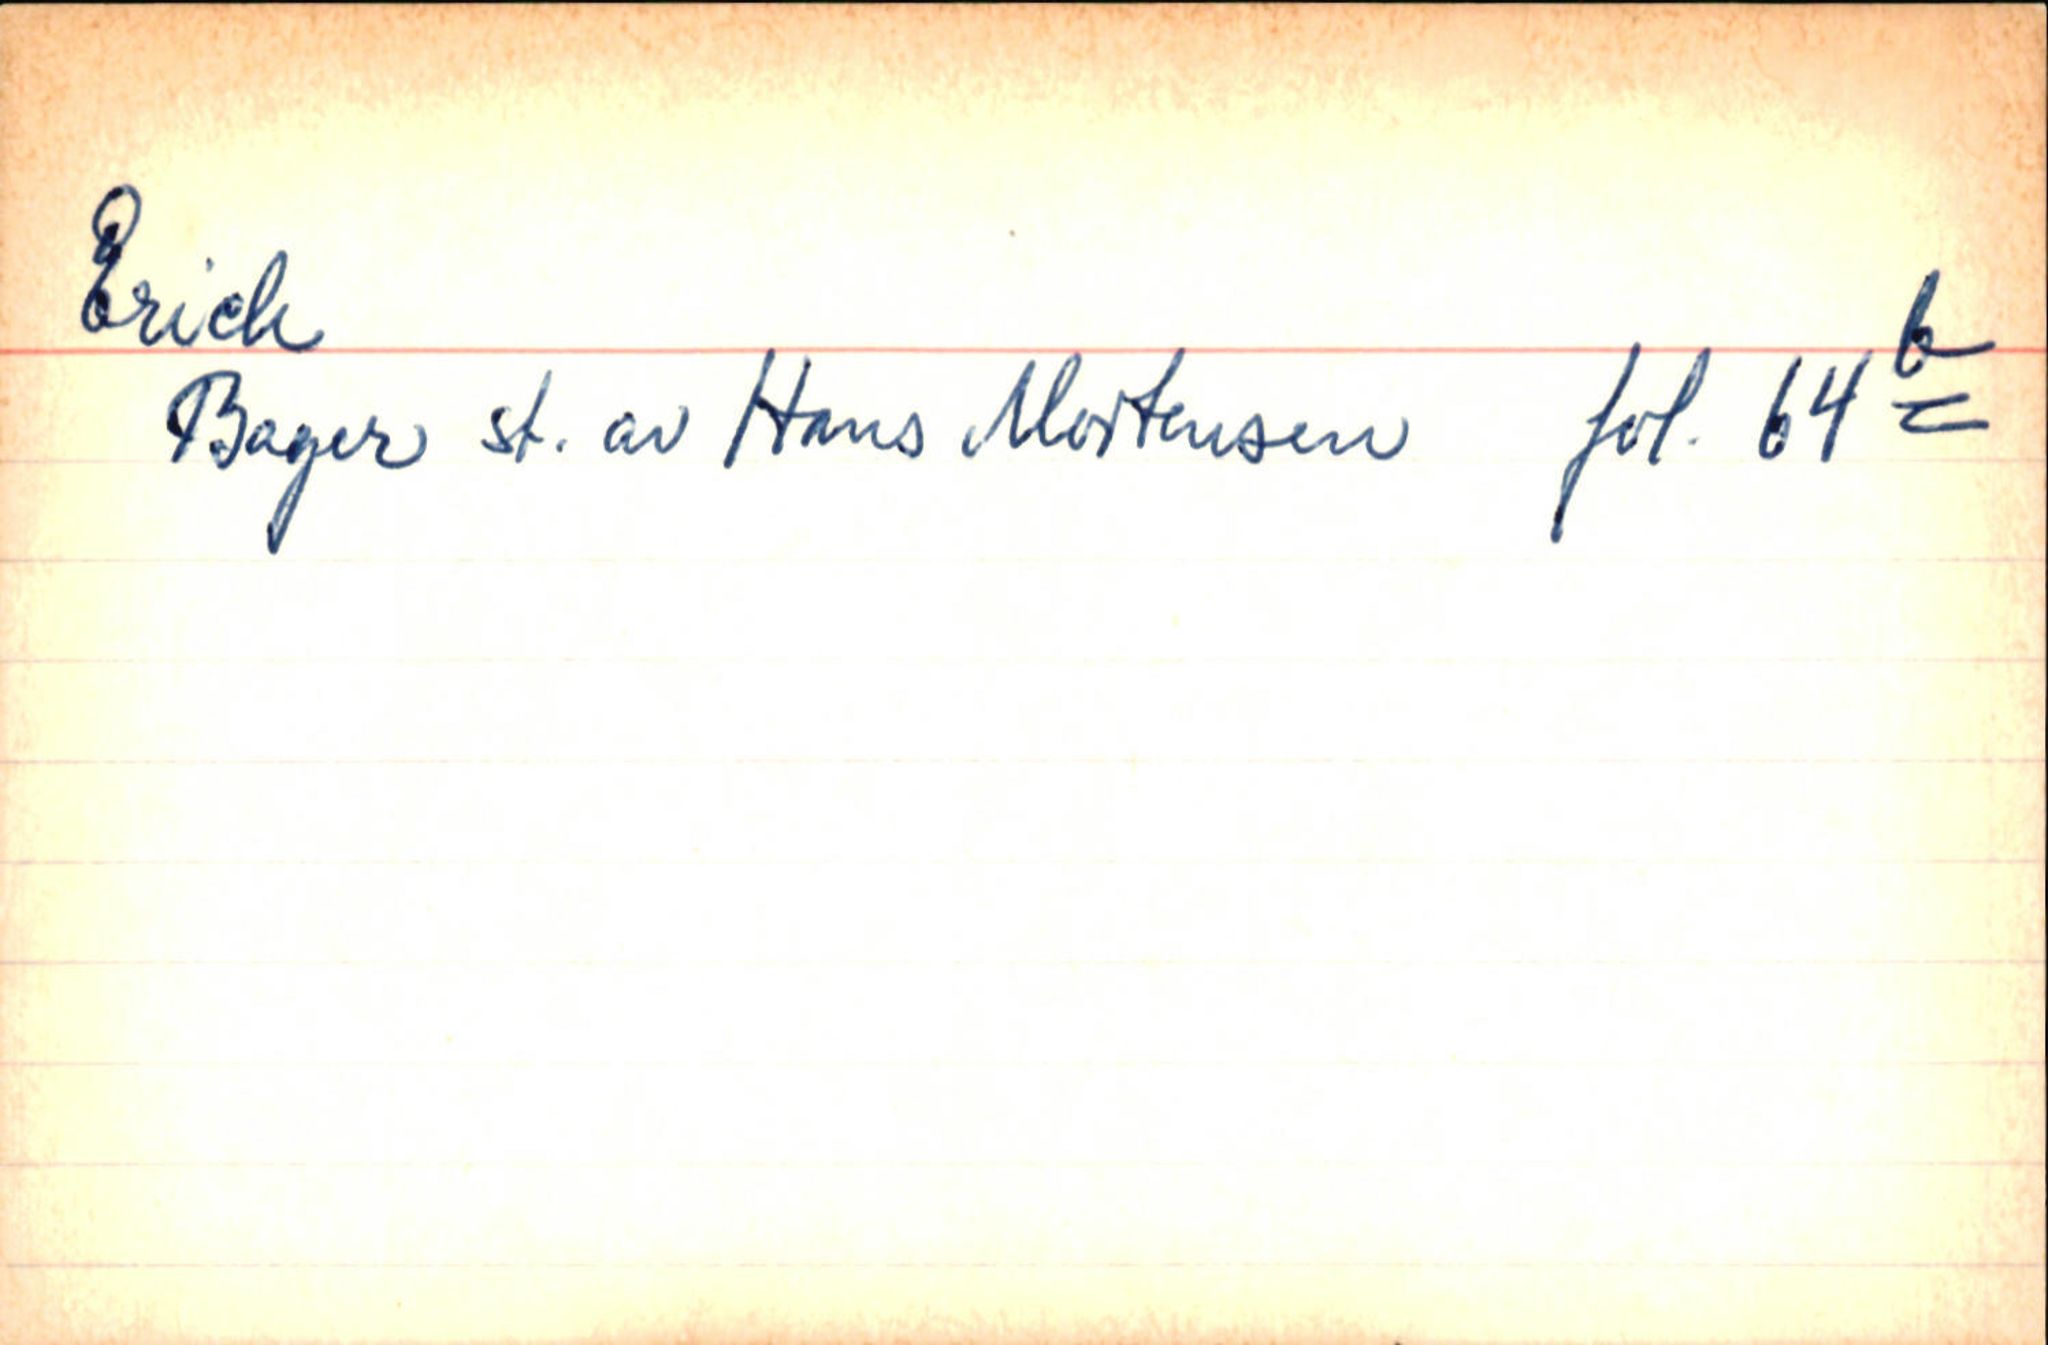 Erich
Bager st. av Hans Mortensen fol. 64 b